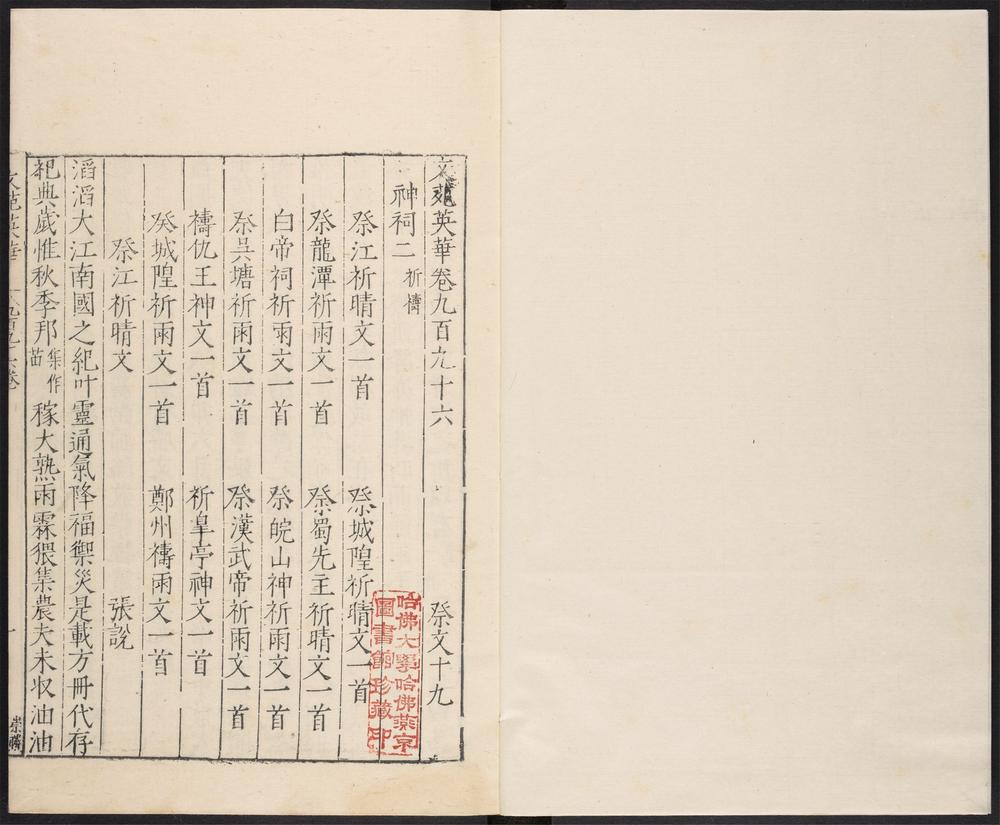 文苑英華卷九百九十六 祭文十九
神祠二 祈禱
祭江祈晴文一首 祭城隍祈晴文一首
祭龍潭祈雨文一首 祭蜀先主祈晴文一首
白帝祠祈雨文一首 祭皖山神祈雨文一首
祭吳塘祈雨文一首 祭漢武帝祈雨文一首
禱仇王神文一首 祈皐亭神文一首
祭城隍祈雨文一首 鄭州禱雨文一首
祭江祈晴文 張說
滔滔大江南國之紀叶靈通氣降福禦災是載方冊代存
祀典歲惟秋季邦集作苗稼大熟雨霖猥集農夫未収油油
文苑英華 九百九十六卷 一
哈佛大學哈佛燕京
圖書館珍藏印